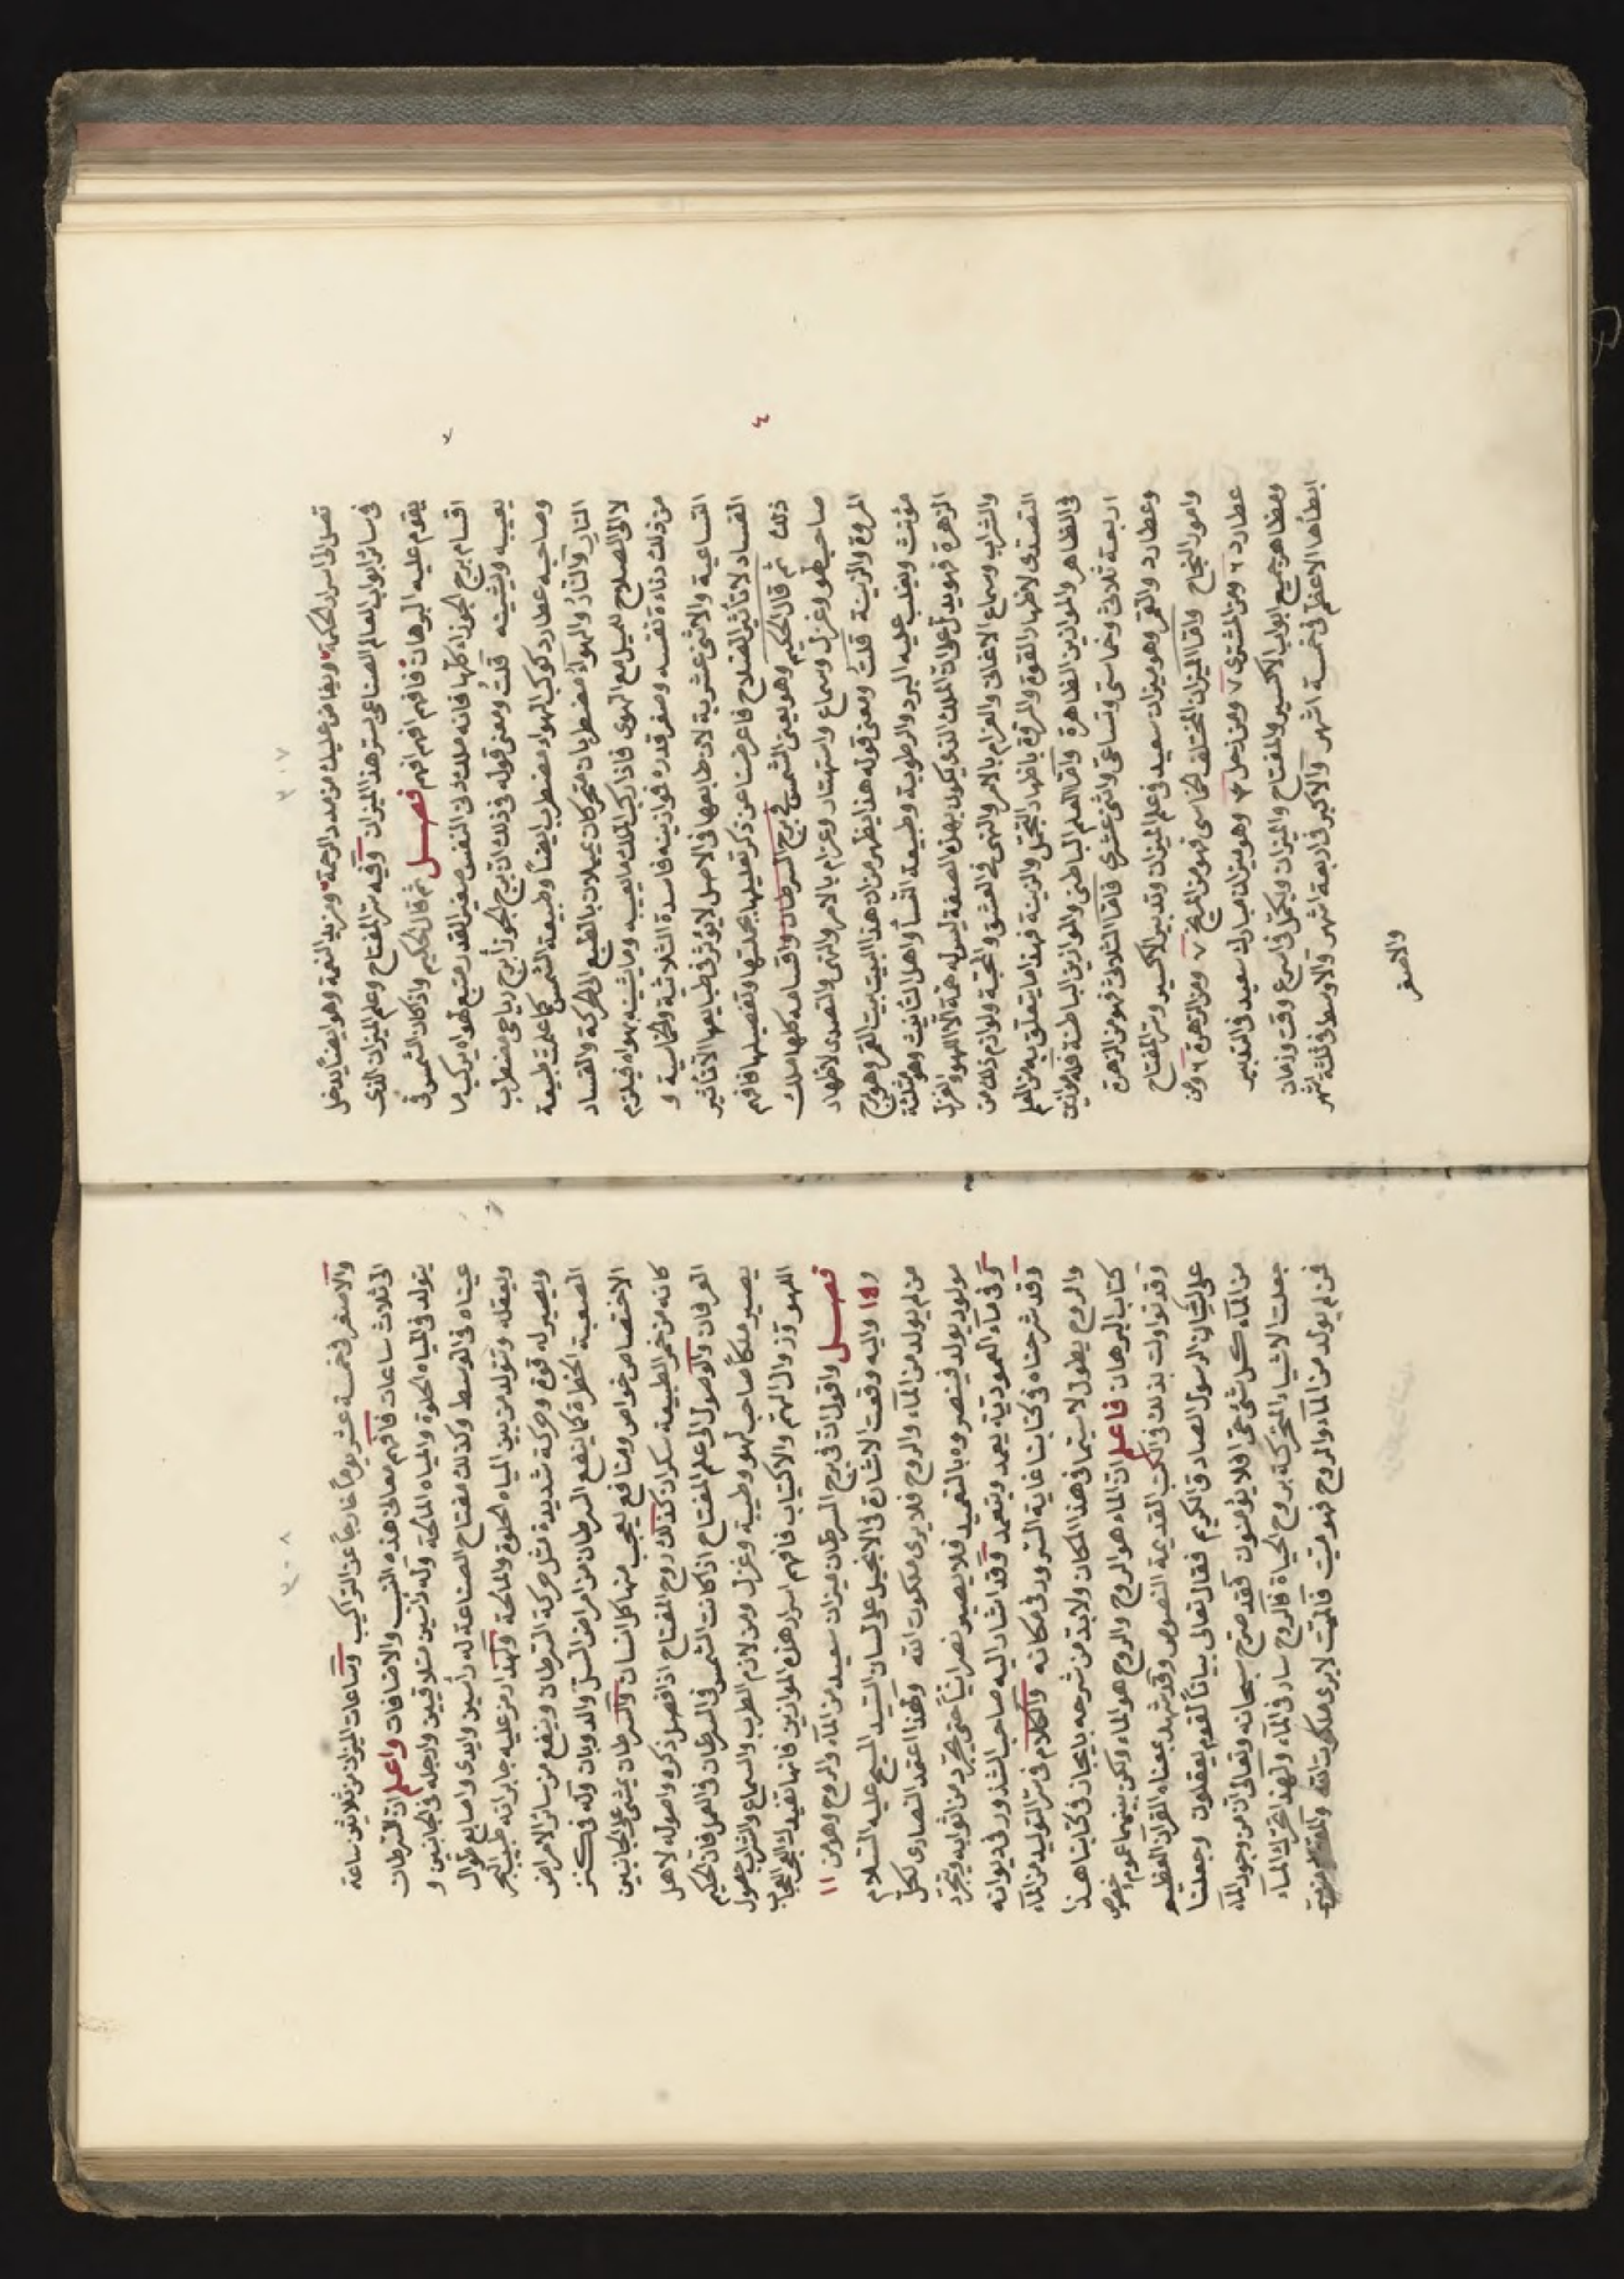 ٣٠٧
تصل الى اسرار الحكمة ويفاض عليك من مدد الرحمة ومزيد النعمة وهو ايضاً يدخل
في سائر ابواب العالم الصناعي بسر هذا الميزان وفيه سر المفتاح وعلم الميزان الذي
يقوم عليه البرهان فافهم افهم افهم فصل ثم قال الحكيم واذا كان الشمس في
اقسام برج الجوزاء كلها فانه ملك دني النفس صغير القدر متبع لهواه يركب ما
يعيبه ويشينه قلت ومعنى قوله في ذلك ان برج الجوزا برج رياحي مضطرب
وصاحبه عطارد كوكب الهواء مضطرب ايضاً وطبيعة الشمس كما علمت طبيعة
النار والنار والهواء مضطربان متحركان يميلان بالطبع الى الحركة والفساد
لا الى الصلاح للميل مع الهوى فاذا ركب الملك ما يعيبه وما يشينه بهواه فيلزم
من ذلك دناءة نفسه وصغر قدره فوازينه فاسدة الثلاثية والخماسية و
التساعية والاثنى عشرية لان طابعها في الاصل لا يؤثر في طبايعها الا تأثير
الفساد لا تأثير الصلاح فاعرضنا عن ذكر تعليلها بجملتها وتفصيلها فافهم
ذلك ثم قال الحكيم وهو يعني الشمس في برج السرطان واقسامه كلها ملك
صاحب لهو وغزل وسماع واستهتار وغرام بالامر والنهى والتصدى لاظهار
المروة والزينة قلت ومعنى قوله هذا يظهر من ان هذا البيت بيت القمر وهو برج
مؤنث ويغلب عليه البرد والرطوبة وطبيعة النسا واهل التأنيث وهو مثلثة
الزهرة فهو يدل على ان الملك الذي يكون بهذه الصفة ليس له همة الا اللهو والغزل
والشراب وسماع الاغاني والغرام بالامر والنهى في العشق والمحبة ولوازم ذلك من
التصدى لاظهار القوة والمروة باظهار التجمل والزينة فهذا ما يتعلق به من العلم
في الظاهر والموازين الظاهرة واما العلم الباطني والموازين الباطنة فله موازين
اربعة ثلاثي وخماسي وتساعي واثنى عشرى فاما الثلاثي فهو من الزهرة
وعطارد والقمر وهو ميزان سعيد في علم الميزان وتدبير الاكسير وسر المفتاح
وامور النجاح واما الميزان المختلف الخماسي فهو من المريخ ٧ ومن الزهرة ٦ ومن
عطارد ٦ ومن المشترى ٧ ومن زحل ٤ وهو ميزان مبارك سعيد في التدبير
ومظاهر جميع ابواب الاكسير والمفتاح والميزان ويكمل في اسرع وقت وزمان
ابطأها الاعظم في خمسة اشهر والاكبر في اربعة اشهر والاوسط في ثلثة اشهر
والاصغر
٤
٣٠٨
والاصغر في خمسة عشر يوماً خارجاً عن التراكيب وساعات الميزان من ثلاثين ساعة
الى ثلاث ساعات فافهم معاني هذه النسب والاضافات واعلم ان السرطان
يتولد في المياه الحلوة والمياه المالحة وله رأسين متلاقيين وارجله في الجانبين و
عيناه في الوسط وكذلك مفتاح الصناعة له رأسين وايدى واصابع طوال
ويعقله وتتولد من بين المياه الحلوة والمالحة ولهذا رمز عليه جابر انه طبيب البحر
ويصير له قوة وحركة شديدة مثل حركة السرطان وينفع من سائر الامراض
الصعبة الخطرة كما ينفع السرطان من امراض السل والذوبان وله في كنز
الاختصاص خواص ومنافع يعجب منها كل انسان والسرطان يمشى على الجانبين
كانه من خمر الطبيعة سكران كذلك روح المفتاح اذا فصل ذكره واصوله لاهل
العرفان والوصول الى علم المفتاح اذا كانت الشمس في السرطان في العمل فان الحكيم
يصير ملكاً صاحب لهو وطيبة وغزل ومن لازم الطرب والسماع والشراب حصول
اللهو وزوال الهم والاكتياب فافهم اسرار هذه الموازين فانها تفيدك العجب العجاب
فصل واقول ان في برج السرطان ميزان سعيد من الماء والروح وهو من ١١
و١٥ واليه وقعت الاشارة في الانجيل على لسان السيد المسيح عليه السلام
من لم يولد من الماء والروح فلا يرى ملكوت الله ولهذا اعتمد النصارى لكل
مولود يولد فينصروه بالتعميد فلا يصير نصرانياً حتى يجرد من اثوابه ويتجرد
وفي ماء العمودية يعمد ويتعمد وقد اشار اليه صاحب الشذور في ديوانه
وقد شرحناه في كتابنا غاية السرور في مكانه والكلام في سر التوليد من الماء
والروح يطول لا سيما في هذا المكان ولابد من شرحه بايجاز في كتابنا هذا
كتاب البرهان فاعلم ان الماء هو الروح والروح هو الماء ولكن بينهما عموم وخصوص
وقد تواولت بذلك في الكتب القديمة النصوص وقد شهد بمعناه القرآن العظيم
على لسان الرسول الصادق الكريم فقال تعالى بياناً لقوم يعقلون وجعلنا
من الماء كل شئ حي افلا يؤمنون فقد صرح سبحانه وتعالى ان من وجود الماء
جعلت الاشياء المتحركة بروح الحياة فالروح سار في الماء ولهذا تحرك الماء
فمن لم يولد من الماء والروح فهو ميت فالميت لا يرى ملكوت الله